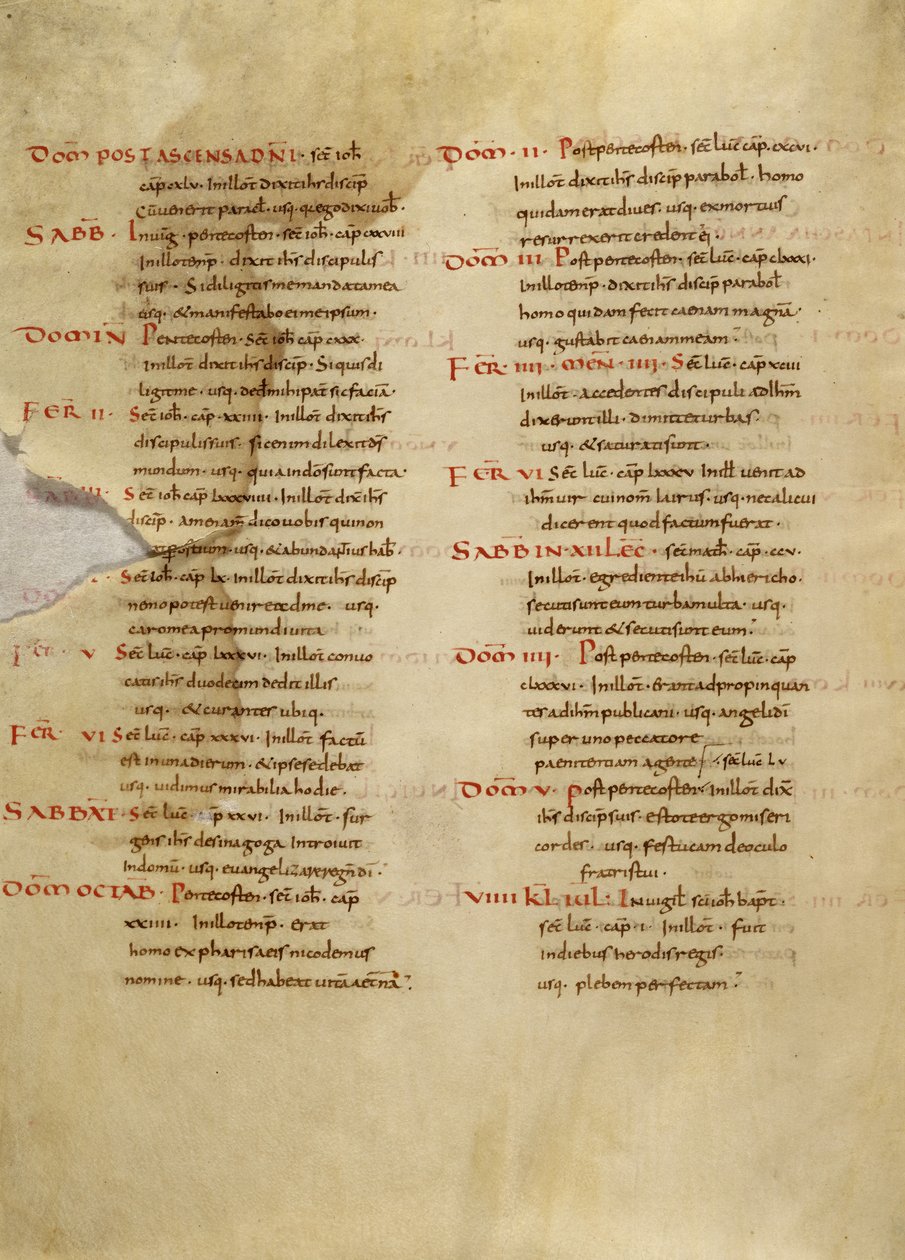 DOM̄ POST ASCENSA DN̄I · sec̄ ioh̄
cap̄ cxlv · Inillot̄ dixit ih̄s discip̄
Cūvenerit paracl̄ · usq · quęgo dixi uob̄ ·
SABB̄ · Inuiḡ · pentecosten · sec̄ ioh̄ · cap̄ cxxviii
Inilloten̄p · dixit ih̄s discipulis
suis · Si diligitis me mandata mea
usq · & manifestabo ei meipsum ·
DOM IN̄ Pentecosten · Sec̄ ioh̄ cap̄ cxxx ·
Inillot̄ dixit ih̄s discip̄ · Si quis di
ligit me · usq · ded̄ mihi pat̄ sic faciā ·
FER̄ II · Sec̄ ioh̄ · cap̄ · xxiiii · Inillot̄ dixit ih̄s
discipulis suis · sic enim dilexit d̄s
mundum · usq · quia in dō sunt facta ·
III · Sec̄ ioh̄ cap̄ lxxxviiii · Inillot̄ dix̄ ih̄s
discip̄ · Amen am̄ dico uobis qui non
usq · & abundantius hab̄ ·
Sec̄ ioh̄ · cap̄ lx · Inillot̄ dixit ih̄s discip̄
nemo potest uenire ad me · usq ·
caro mea pro mundi uita
FER̄ V Sec̄ luc̄ · cap̄ lxxxvi · Inillot̄ conuo
catis ih̄s duodecim dedit illis
usq · & curantes ubiq ·
FER̄ VI Sec̄ luc̄ · cap̄ xxxvi · Inillot̄ factū
est in una dierum · & ipse sedebat
usq · uidimus mirabilia hodie ·
SABBAT̄ · Sec̄ luc̄ · ap̄ xxvi · Inillot̄ · sur
gens ih̄s de sinagoga Introiuit
In domū · usq · euangelizare regn̄ dī ·
DOM̄ OCTAB̄ · Pentecosten · sec̄ ioh̄ · cap̄
xxiiii · Inilloten̄p · erat
homo ex pharisaeis nicodemus
nomine · usq · sed habeat uitā aet̄nā ·
DOM̄ · II · Post pentecosten · sec̄ luc̄ cap̄ · cxcvi ·
Inillot̄ dixit ih̄s discip̄ parabol̄ · homo
quidam erat diues · usq · ex mortuis
resurrexerit credent ei ·
DOM̄ III Post pentecosten · sec̄ luc̄ · cap̄ clxxxi ·
Inilloten̄p · dixit ih̄s discip̄ parabol̄
homo quidam fecit caenam magnā ·
usq · gustabit caenam meam ·
FER̄ · IIII · MEN̄ · IIII · Sec̄ luc̄ · cap̄ xciii
Inillot̄ · accedentes discipuli ad ih̄m
dixerunt illi · dimitte turbas ·
usq · & saturati sunt ·
FER̄ VI Sec̄ luc̄ · cap̄ lxxxv Inill̄ uenit ad
ih̄m uir cui nom̄ Iairus · usq · ne alicui
dicerent quod factum fuerat ·
SABB̄ IN · XII LEC̄ · sec̄ math̄ · cap̄ · ccv ·
Inillot̄ · egrediente ih̄u ab hiericho ·
secuti sunt eum turba multa · usq ·
uiderunt & secuti sunt eum ·
DOM̄ IIII · Post pentecosten · sec̄ luc̄ · cap̄
clxxxvi · Inillot̄ · Erant adpropinquan
tes ad ih̄m publicani · usq · angeli dī
super uno peccatore
paenitentiam agente · sec̄ luc lv
DOM̄ V · Post pentecosten · Inillot̄ dix̄
ih̄s discip̄ suis · estote ergo miseri
cordes · usq · festucam de oculo
fratris tui ·
VIIII KL̄ · IUL̄ · In uigil̄ sc̄i ioh̄ bapt̄ ·
sec̄ luc̄ · cap̄ · i · Inillot̄ · fuit
in diebus herodis regis ·
usq · plebem perfectam ·